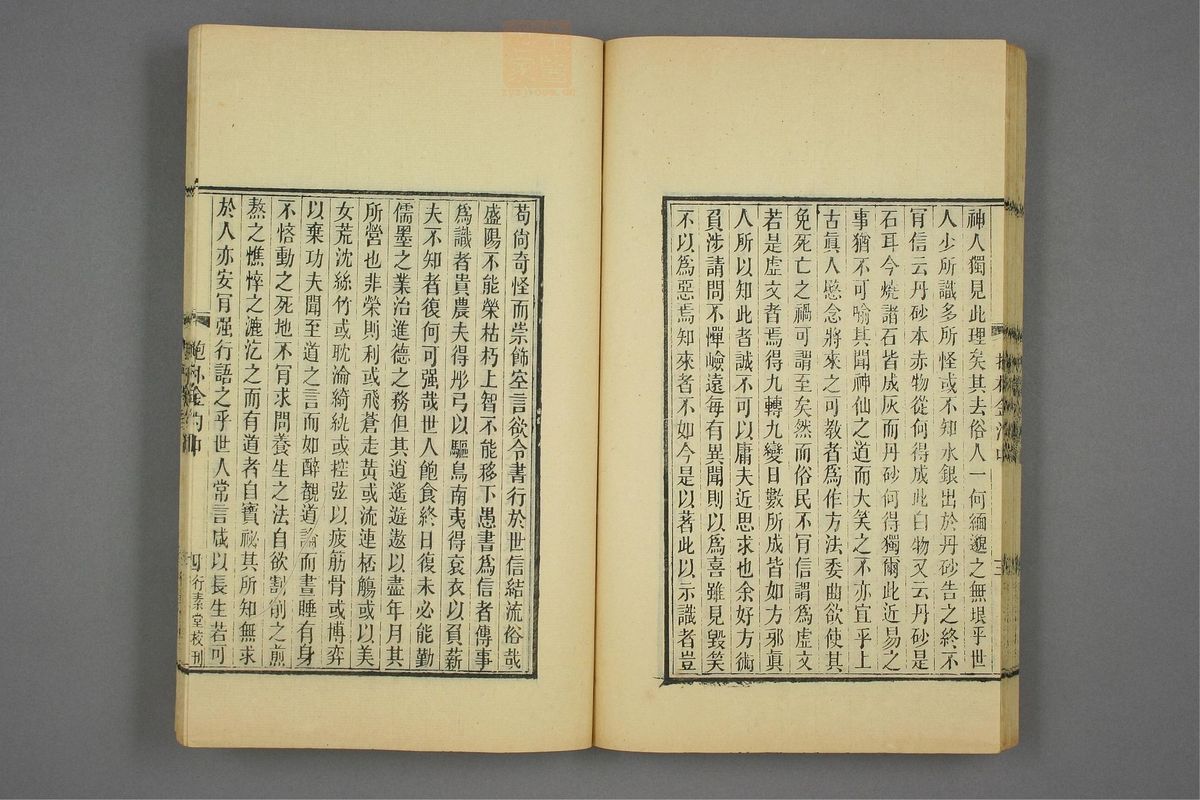 神人獨見此理矣其去俗人一何緬邈之無垠乎世
人少所識多所怪或不知水銀出於丹砂告之終不
肎信云丹砂本赤物從何得成此白物又云丹砂是
石耳今燒諸石皆成灰而丹砂何得獨爾此近易之
事猶不可喻其聞神仙之道而大笑之不亦宜乎上
古眞人愍念將來之可敎者爲作方法委曲欲使其
免死亡之禍可謂至矣然而俗民不肎信謂爲虛文
若是虛文者焉得九轉九變日數所成皆如方邪眞
人所以知此者誠不可以庸夫近思求也余好方術
負涉請問不憚嶮遠每有異聞則以爲喜雖見毀笑
不以爲惡焉知來者不如今是以著此以示識者豈
苟尙奇怪而崇飾空言欲令書行於世信結流俗哉
盛陽不能榮枯朽上智不能移下愚書爲信者傳事
爲識者貴農夫得彤弓以驅鳥南夷得袞衣以負薪
夫不知者復何可强哉世人飽食終日復未必能勤
儒墨之業治進德之務但其逍遙遊遨以盡年月其
所營也非榮則利或飛蒼走黃或流連柸觴或以美
女荒沈絲竹或耽淪綺紈或控弦以疲筋骨或博弈
以棄功夫聞至道之言而如醉覩道論而晝睡有身
不悋動之死地不肎求問養生之法自欲割削之煎
熬之憔悴之漉汔之而有道者自寶祕其所知無求
於人亦安肎强行語之乎世人常言咸以長生若可
四
行素堂校刊